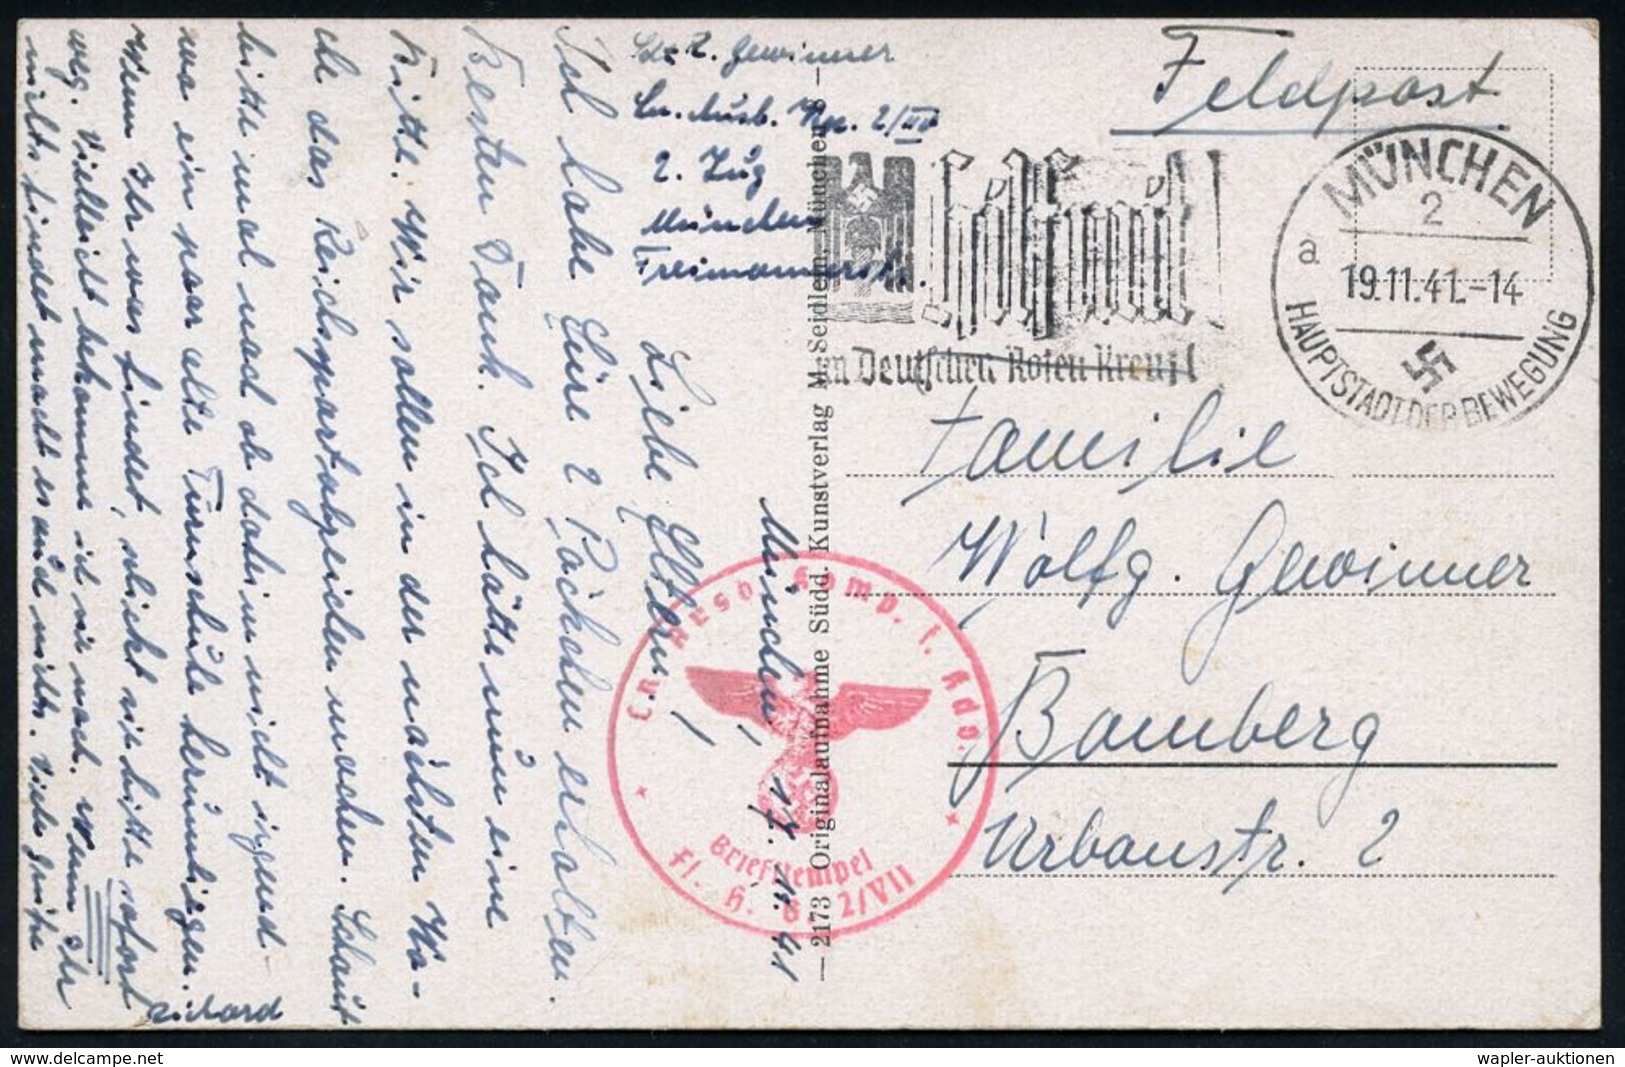 Feldpost
Gewinner
Ln. Ausb. Kp. 2/III
2. Zug
München
Freimannerstr.
MÜNCHEN
2
a
19.11.41.-14
HAUPTSTADT DER BEWEGUNG
Hilf mit
im Deutschen Roten Kreuz!
Familie
Wolfg. Gewinner
Bamberg
Urbanstr. 2
— 2173 Originalaufnahme Südd. Kunstverlag M. Seidlein, München 8 —
Briefstempel
München, 17. 11. 41
Liebe Eltern!
Ich habe Eure 2 Päckchen erhalten.
Besten Dank. Ich hätte nun eine
Bitte. Wir sollen in der nächsten Wo-
che das Reichssportabzeichen machen. Schaut
bitte mal nach ob daheim nicht irgend-
wo ein paar alte Turnschuhe herumliegen.
Wenn Ihr was findet, schickt sie bitte sofort
weg. Vielleicht bekomme ich sie noch. Wenn Ihr
nichts findet macht es auch nichts. Viele Grüße
Richard
©www.delcampe.net
wapler-auktionen